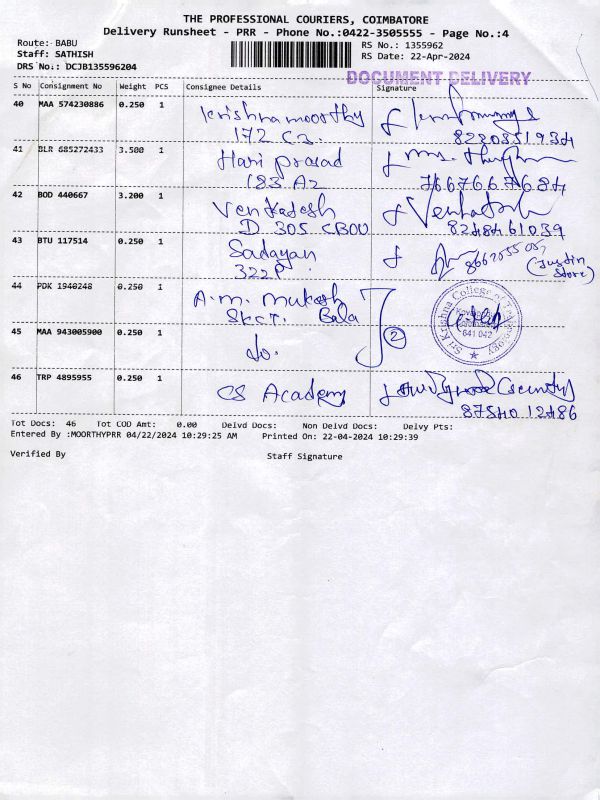 THE PROFESSIONAL COURIERS, COIMBATORE
Delivery Runsheet - PRR - Phone No.:0422-3505555 - Page No.:4
Route: BABU
Staff: SATHISH
DRS No.: DCJB135596204
RS No.: 1355962
RS Date: 22-Apr-2024
DOCUMENT DELIVERY
S No Consignment No Weight PCS Consignee Details Signature
40 MAA 574230886 0.250 1 Krishnamoorthy
172 C3.
41 BLR 685272433 3.500 1 Hari prasad
183 A2 7667667684
42 BOD 440667 3.200 1 Venkadesh Venkatesh
D 305 CBOU 8248461039
43 BTU 117514 0.250 1 Sadayan
322P (Justin Store)
44 PDK 1940248 0.250 1 A.m. Mukesh
SKCT. Bala
Sri Krishna College of Technology
641 042
45 MAA 943005900 0.250 1 do. 2
46 TRP 4895955 0.250 1 CS Academy
87540 12486
Tot Docs: 46 Tot COD Amt: 0.00 Delvd Docs: Non Delvd Docs: Delvy Pts:
Entered By :MOORTHYPRR 04/22/2024 10:29:25 AM Printed On: 22-04-2024 10:29:39
Verified By Staff Signature